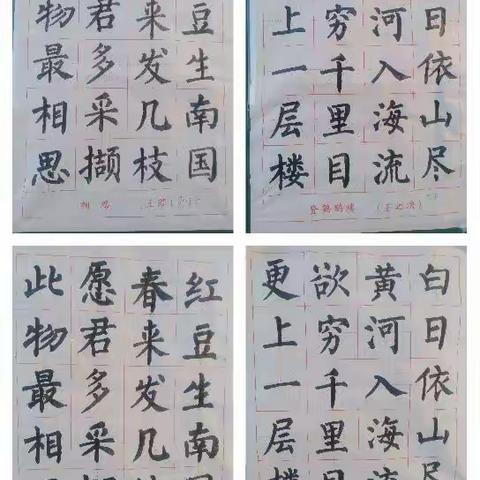 豆生南国
来发几枝
君多采撷
物最相思
相思
日依山尽
河入海流
穷千里目
上一层楼
登鹳鹊楼 (王之涣)
红豆生南
春来发几
愿君多采
此物最相
白日依山尽
黄河入海流
欲穷千里目
更上一层楼